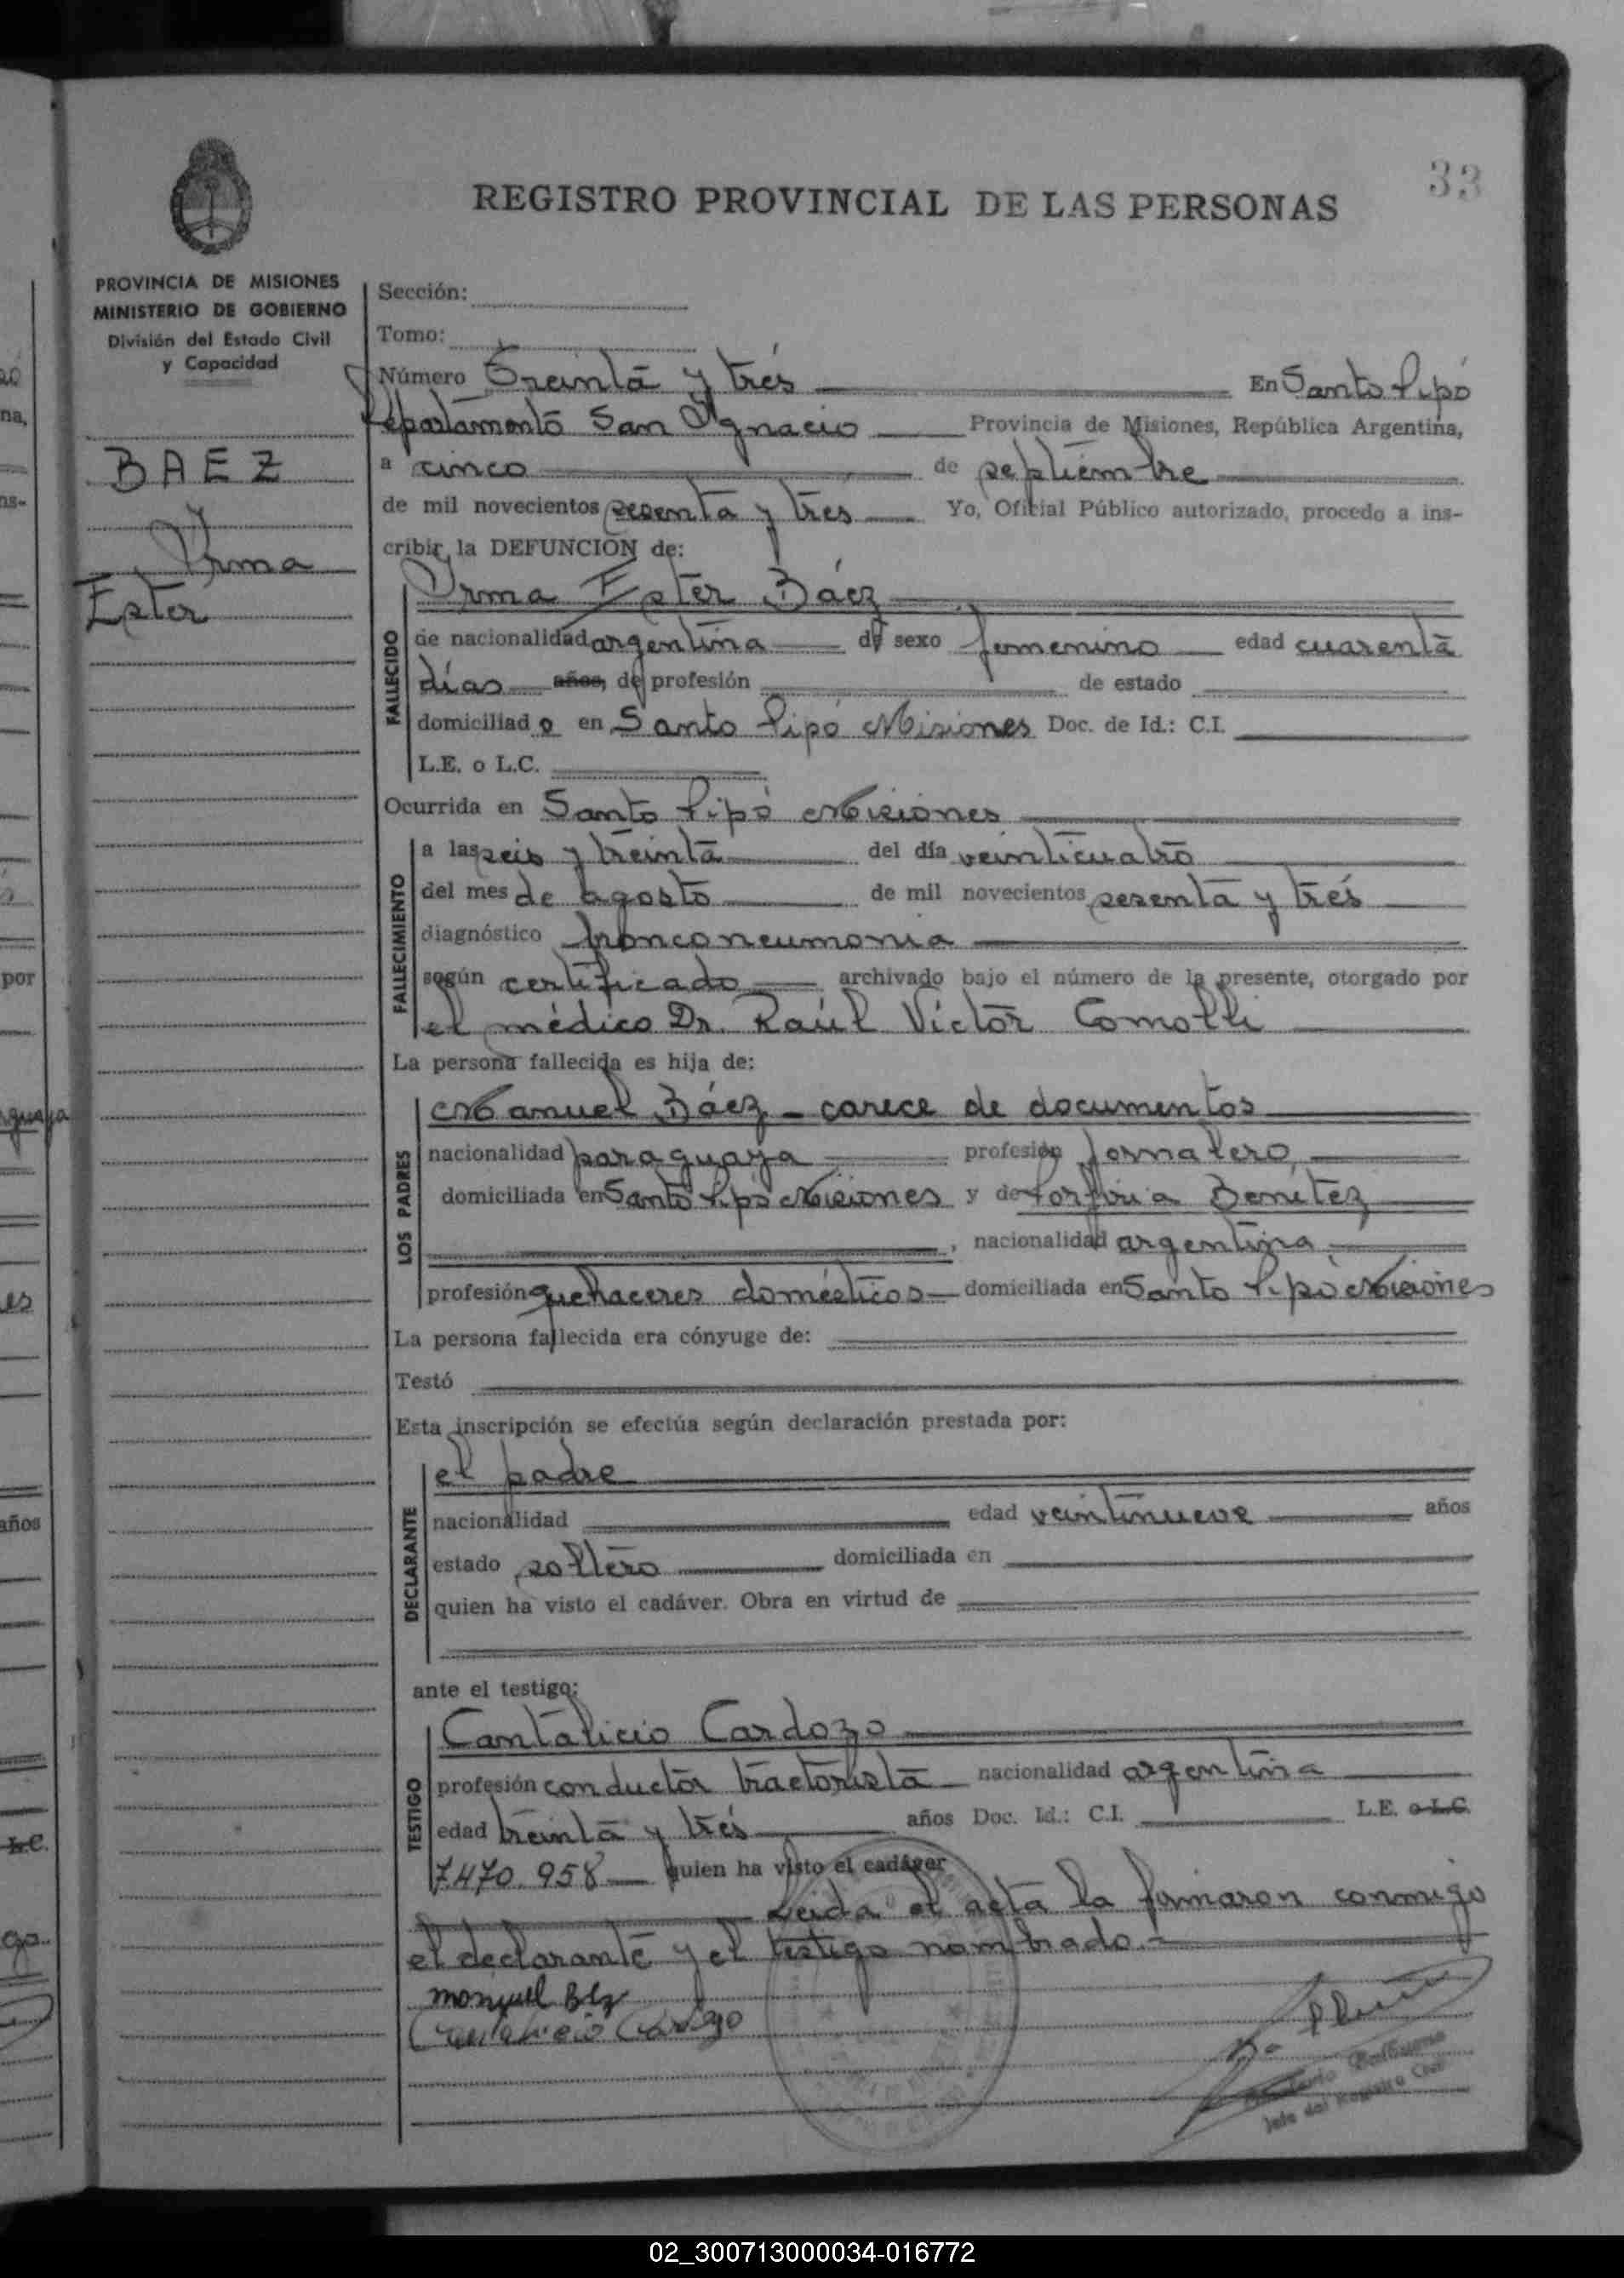 33
REGISTRO PROVINCIAL DE LAS PERSONAS
PROVINCIA DE MISIONES
MINISTERIO DE GOBIERNO
División del Estado Civil
y Capacidad
BAEZ
Yrma
Ester
Sección:
Tomo:
Número Treinta y tres En Santo Pipó
Departamento San Ygnacio Provincia de Misiones, República Argentina,
a cinco de septiembre
de mil novecientos sesenta y tres Yo, Oficial Público autorizado, procedo a ins-
cribir la DEFUNCION de:
Yrma Ester Báez
FALLECIDO
de nacionalidad argentina de sexo femenino edad cuarenta
días años, de profesión de estado
domiciliado en Santo Pipó Misiones Doc. de Id.: C.I.
L.E. o L.C.
Ocurrida en Santo Pipó Misiones
FALLECIMIENTO
a las seis y treinta del día veinticuatro
del mes de agosto de mil novecientos sesenta y trés
diagnóstico bronconeumonia
según certificado archivado bajo el número de la presente, otorgado por
el médico Dr. Raúl Victor Comolli
La persona fallecida es hija de:
LOS PADRES
Manuel Báez - carece de documentos
nacionalidad paraguaya profesión jornalero,
domiciliada en Santo Pipó Misiones y de Porfiria Benitez
, nacionalidad argentina,
profesión quehaceres domésticos domiciliada en Santo Pipó Misiones
La persona fallecida era cónyuge de:
Testó
Esta inscripción se efectúa según declaración prestada por:
DECLARANTE
el padre
nacionalidad edad veintinueve años
estado soltero domiciliada en
quien ha visto el cadáver. Obra en virtud de
ante el testigo:
TESTIGO
Cantalicio Cardozo
profesión conductor tractorista nacionalidad argentina
edad treinta y trés años Doc. Id.: C.I. L.E. o L.C.
7.470.958 quien ha visto el cadáver
Leida el acta la firmaron conmigo
el declarante y el testigo nombrado.-
Jefe del Registro Civil
por
años
L.C.
es
na,
ns-
go.
02_300713000034-016772